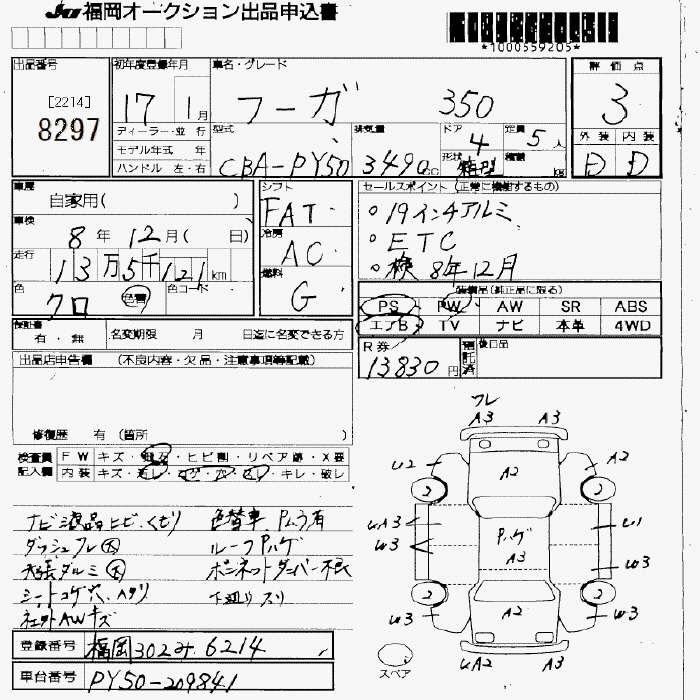 JU 福岡オークション出品申込書
*1000559205*
出品番号
[2214]
8297
初年度登録年月
17 1月
ディーラー・並 行
モデル年式 年
ハンドル 左・右
車名・グレード
フーガ 350
型式
CBA-PY50
排気量
3490cc
ドア
4
定員
5人
形状
箱型
積載
kg
評価点
3
外装 内装
D D
車歴
自家用( )
車検
8年 12月( 日)
走行
13万5千121km
色
クロ
色替
色コード
シフト
FAT
冷房
AC
燃料
G
セールスポイント (正常に機能するもの)
。19インチアルミ
。ETC
。検 8年12月
装備品(純正品に限る)
PS PW AW SR ABS
エアB TV ナビ 本革 4WD
保証書
有・無
名変期限 月 日迄に名変できる方
R券
13830円
預託済
後日品
出品店申告欄 (不良内容・欠品・注意事項等記載)
修復歴 有 (箇所 )
検査員記入欄
FW キズ・飛石・ヒビ割・リペア跡・X要
内装 キズ・汚レ・コゲ・穴・スレ・キレ・破レ
ナビ液晶ヒビ、くもり
ダッシュフレ(大)
天張ダルミ(大)
シートコゲ穴、ヘタリ
社外AWキズ
色替車、Pムラ有
ルーフPハゲ
ボンネットダンパー不良
下廻りスリ
登録番号
福岡302み6214
車台番号
PY50-209841
フレ
A3 A3
U2 A2 A2
2 2
UA3 U1
Pハゲ
W3 A3 W3
2 2
W3 A2 W3
UA2 A3
スペア